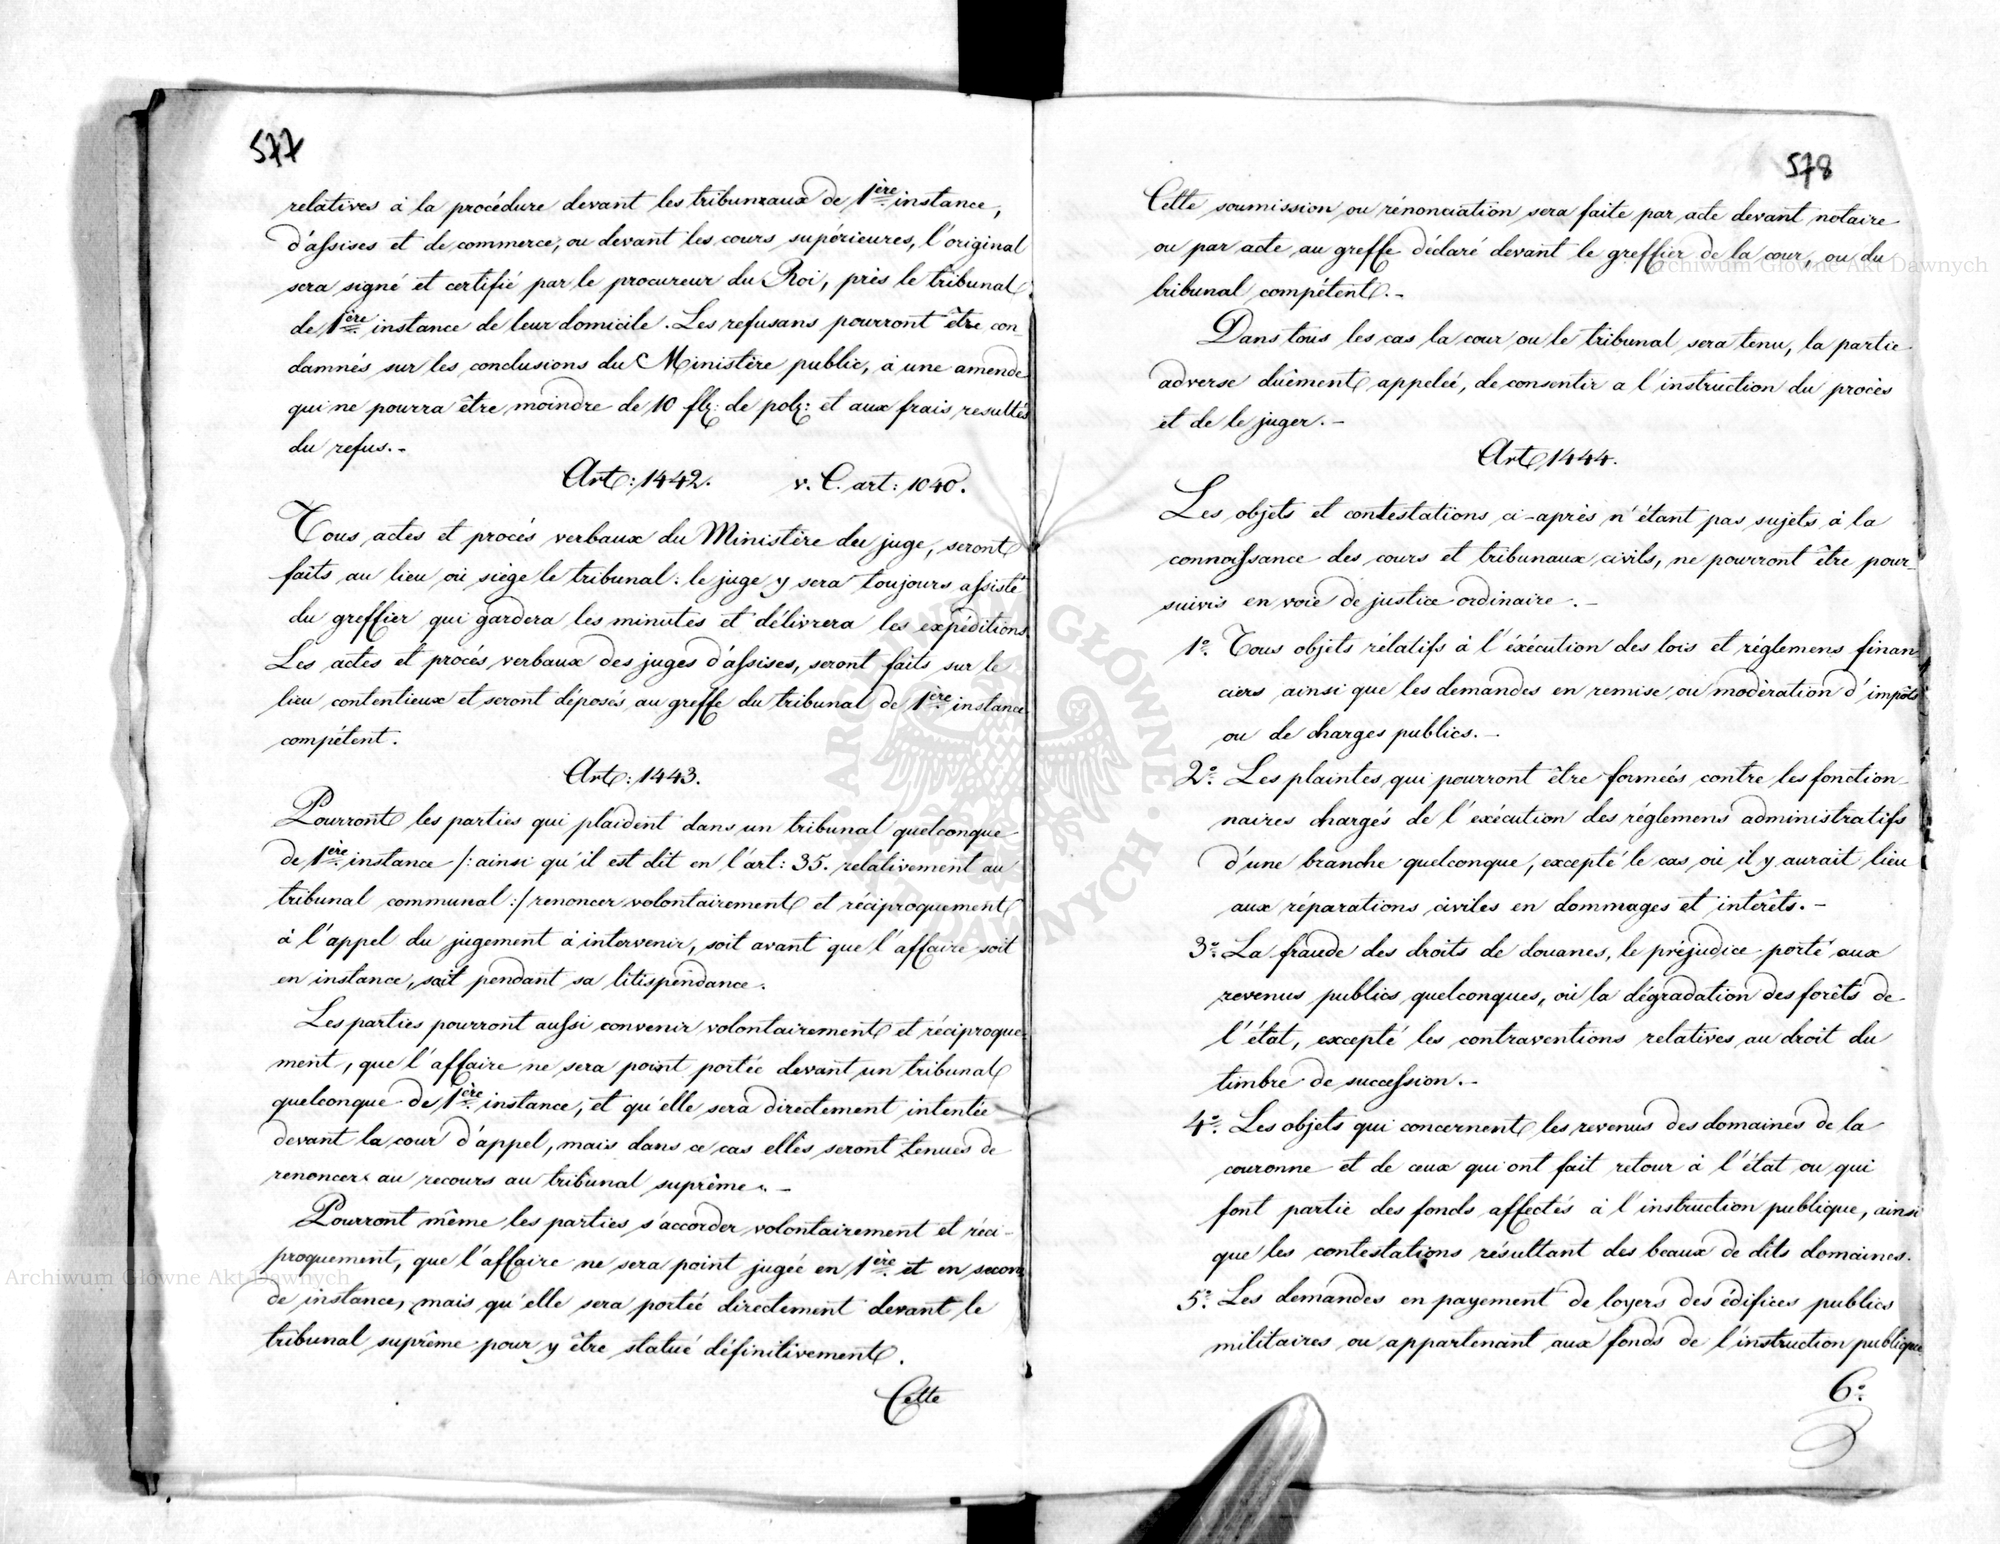 577
relatives à la procédure devant les tribunaux de 1ère instance,
d'assises et de commerce, ou devant les cours supérieures, l'original
sera signé et certifié par le procureur du Roi, près le tribunal
de 1ère instance de leur domicile. Les refusans pourront être con-
damnés sur les conclusions du Ministère public, à une amende
qui ne pourra être moindre de 10 flz: de polz: et aux frais resultés
du refus.-
Art: 1442. v. C. art: 1040.
Tous actes et procés verbaux du Ministère du juge, seront
faits au lieu où siège le tribunal: le juge y sera toujours assisté
du greffier qui gardera les minutes et délivrera les expéditions.
Les actes et procés verbaux des juges d'assises, seront faits sur le
lieu contentieux et seront déposés au greffe du tribunal de 1ère instance
compétent.
Art: 1443.
Pourront les parties qui plaident dans un tribunal quelconque
de 1ère instance /: ainsi qu'il est dit en l'art: 35. relativement au
tribunal communal :/ renoncer volontairement et réciproquement
à l'appel du jugement à intervenir, soit avant que l'affaire soit
en instance, soit pendant sa litispendance.
Les parties pourront aussi convenir volontairement et réciproque-
ment, que l'affaire ne sera point portée devant un tribunal
quelconque de 1ère instance, et qu'elle sera directement intentée
devant la cour d'appel, mais dans ce cas elles seront tenues de
renoncer au recours au tribunal suprême. -
Pourront même les parties s'accorder volontairement et réci-
proquement, que l'affaire ne sera point jugée en 1ère et en secon-
de instance, mais qu'elle sera portée directement devant le
tribunal suprême pour y être statué définitivement.
Cette
578
Cette soumission ou rénonciation sera faite par acte devant notaire
ou par acte au greffe déclaré devant le greffier de la cour, ou du
tribunal compétent.-
Dans tous les cas la cour ou le tribunal sera tenu, la partie
adverse duêment appeleé, de consentir a l'instruction du procès
et de le juger.-
Art 1444.
Les objets et contestations ci-après n'étant pas sujets à la
connoissance des cours et tribunaux civils, ne pourront être pour-
suivis en voie de justice ordinaire.-
1o. Tous objets rélatifs à l'éxécution des lois et réglemens finan-
ciers ainsi que les demandes en remise ou modération d'impôts
ou de charges publics.-
2o. Les plaintes qui pourront être formeés contre les fonction-
naires chargés de l'exécution des réglemens administratifs
d'une branche quelconque, excepté le cas où il y aurait lieu
aux réparations civiles en dommages et intérêts.-
3o. La fraude des droits de douanes, le préjudice porté aux
revenus publics quelconques, où la dégradation des forêts de
l'état, excepté les contraventions relatives au droit du
timbre de succession.-
4o. Les objets qui concernent les revenus des domaines de la
couronne et de ceux qui ont fait retour à l'état ou qui
font partie des fonds affectés à l'instruction publique, ainsi
que les contestations résultant des beaux de dits domaines.
5o. Les demandes en payement de loyers des édifices publics
militaires ou appartenant aux fonds de l'instruction publique
6o.
Archiwum Główne Akt Dawnych
Archiwum Główne Akt Dawnych
ARCHIWUM GŁÓWNE AKT DAWNYCH